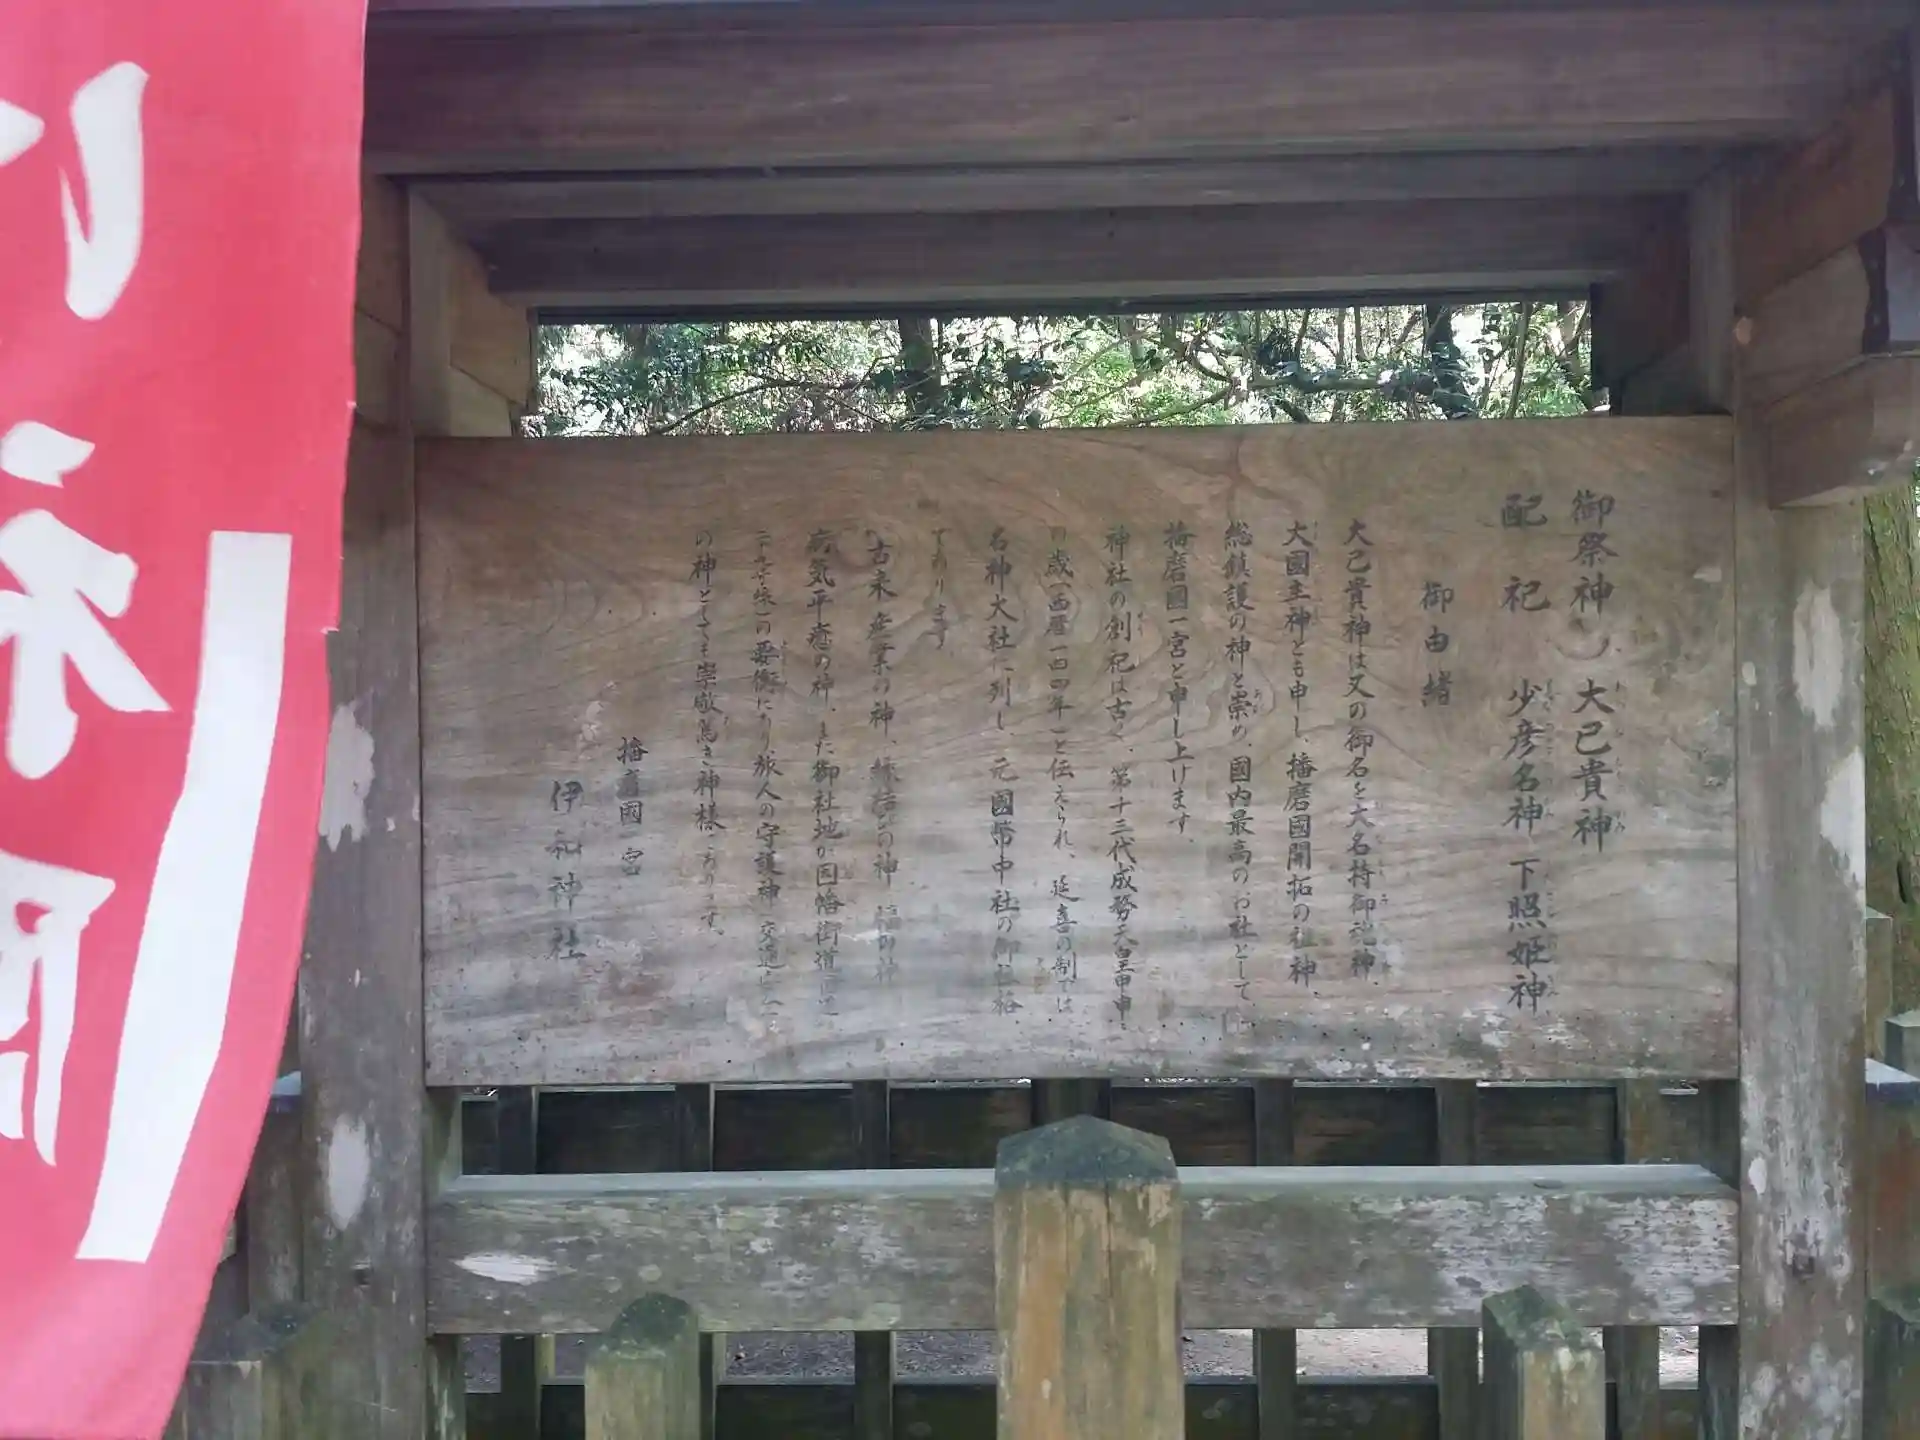 御祭神 大己貴神
配祀 少彦名神 下照姫神
御由緒
大己貴神は又の御名を大名持御魂神、
大國主神とも申し、播磨國開拓の祖神、
総鎮護の神と崇め、國内最高のお社として、
播磨國一宮と申し上げます。
神社の創祀は古く、第十三代成務天皇甲申
の歳(西暦一四四年)と伝えられ、延喜の制では
名神大社に列し、元國幣中社の御社格
であります
古来 産業の神、縁結びの神 福の神
病気平癒の神、また御社地が因幡街道
の要衝にあり旅人の守護神 交通
の神としても崇敬篤き神様であります。
播磨國一宮
伊和神社